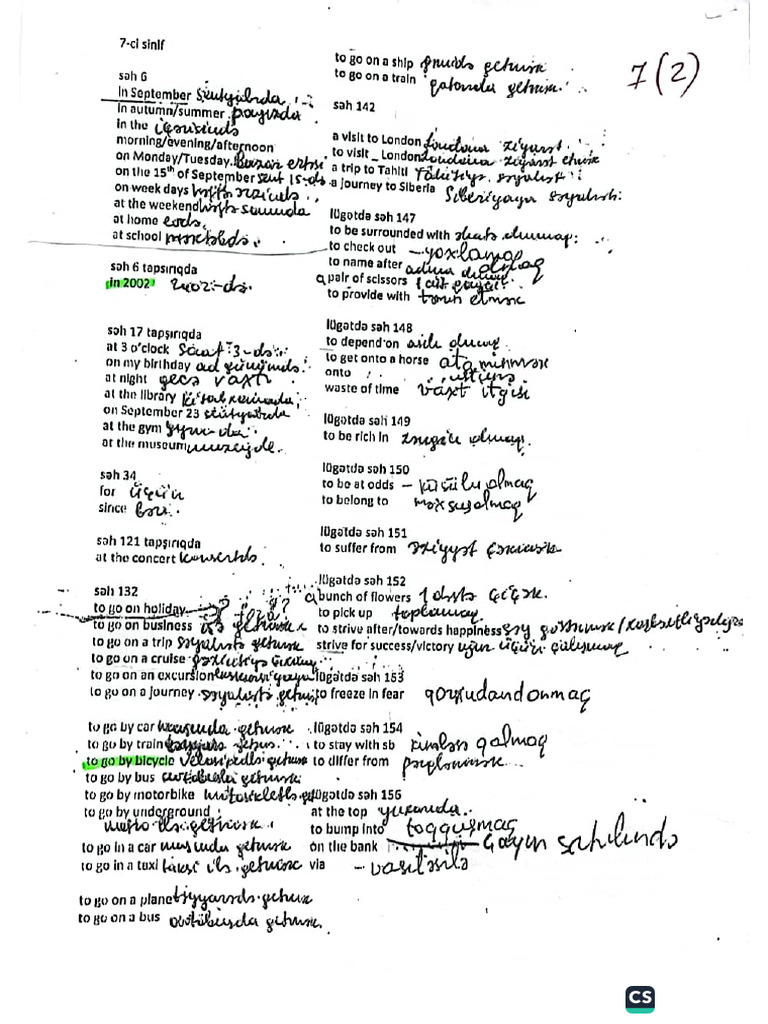 7-ci sinif
səh 6
in September sentyabrda
in autumn/summer payızda
in the içərisində
morning/evening/afternoon
on Monday/Tuesday Bazar ertəsi
on the 15th of September sent 15-də
on week days həftə
at the weekend həftə sonunda
at home evdə
at school məktəbdə
səh 6 tapşırıqda
in 2002 2002-də
səh 17 tapşırıqda
at 3 o'clock saat 3-də
on my birthday ad günümdə
at night gecə vaxtı
at the library kitabxanada
on September 23 sentyabrda
at the gym gym-da
at the museum muzeyde
səh 34
for üçün
since bəri
səh 121 tapşırıqda
at the concert konsertdə
səh 132
to go on holiday
to go on business iş getmək
to go on a trip səyahətə getmək
to go on a cruise
to go on an excursion
to go on a journey səyahətə getmək
to go by car maşınla getmək
to go by train
to go by bicycle velosipedlə getmək
to go by bus avtobusla getmək
to go by motorbike motosikletlə
to go by underground
metro ilə getmək
to go in a car maşında getmək
to go in a taxi taksi ilə getmək
to go on a plane təyyarədə getmək
to go on a bus avtobusda getmək
to go on a ship gəmidə getmək
to go on a train qatarda getmək
7(2)
səh 142
a visit to London Londona ziyarət
to visit _ London Londona ziyarət etmək
a trip to Tahiti Tahitiyə səyahət
a journey to Siberia Siberiyaya səyahət
lüğətdə səh 147
to be surrounded with əhatə olunmaq
to check out – yoxlamaq
to name after adına olmaq
a pair of scissors 1 cüt qayçı
to provide with təmin etmək
lüğətdə səh 148
to depend on asılı olmaq
to get onto a horse ata minmək
onto üstünə
waste of time vaxt itgisi
lüğətdə səh 149
to be rich in zəngin olmaq
lüğətdə səh 150
to be at odds – küsülü olmaq
to belong to məxsus olmaq
lüğətdə səh 151
to suffer from əziyyət çəkmək
lüğətdə səh 152
a bunch of flowers 1 dəstə çiçək
to pick up toplamaq
to strive after/towards happiness səy göstərmək/
strive for success/victory uğur üçün çalışmaq
lüğətdə səh 153
to freeze in fear qorxudan donmaq
lüğətdə səh 154
to stay with sb kimləsə qalmaq
to differ from fərqlənmək
lüğətdə səh 156
at the top yuxarıda
to bump into toqquşmaq
on the bank Çayın sahilində
via – vasitəsilə
CS